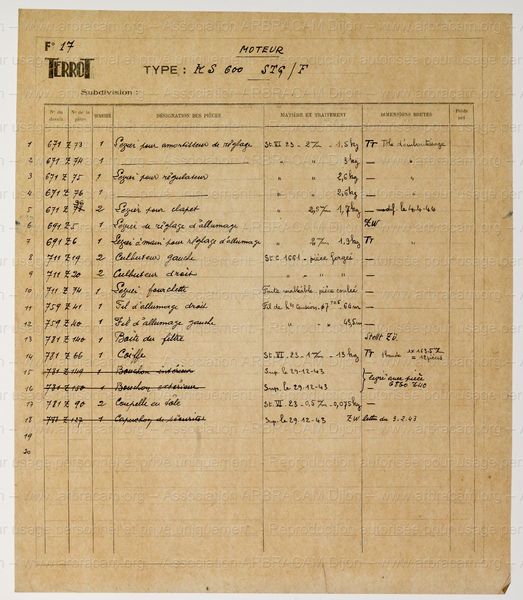 Fº 17
MOTEUR
TERROT
TYPE : KS 600 STG/F
Subdivision :
Nº du dessin Nº de la pièce NOMBRE DÉSIGNATION DES PIÈCES MATIÈRE ET TRAITEMENT DIMENSIONS BRUTES Poids net
1 671 Z 73 1 Levier pour amortisseur de réglage St. VI 23 - 2 - 1,5 kg Tr
2 671 Z 74 1 " " 3 kg — "
3 671 Z 75 1 Levier pour régulateur " " 2,6 kg — "
4 671 Z 76 1 " " 2,6 kg — "
5 671 Z 2 Levier pour clapet " 2,5 1,7 kg — dif. le 4-4-44
6 691 Z 5 1 Levier de réglage d'allumage — ZW
7 691 Z 6 1 Levier à main pour réglage d'allumage " 2 1,3 kg Tr "
8 711 Z 19 2 Culbuteur gauche St. C. 1661 - pièce forgée —
9 711 Z 20 2 Culbuteur droit " " " " —
10 711 Z 74 1 Levier fourchette Fonte malléable pièce coulée —
11 759 Z 41 1 Fil d'allumage droit Fil de Hte tension 60 cm —
12 759 Z 40 1 Fil d'allumage gauche " " 45 cm —
13 781 Z 140 1 Boite du filtre Stellt ZÜ.
14 781 Z 66 1 Coiffe St. VI. 23 - 1 - 13 kg Tr
15 781 Z 149 1 Bouchon intérieur Sup. le 29-12-43
16 781 Z 150 1 Bouchon extérieur Sup. le 29.12.43
17 781 Z 90 2 Coupelle en tôle St. VI 23 - 0,5 - 0,075 kg —
18 781 Z 137 1 Capuchon de sécurité Sup. le 29-12-43 ZW lettre du 3.2.43
19
20
www.arbracam.org – Association ARBRACAM Dijon – www.arbracam.org
Reproduction autorisée pour usage personnel et privé uniquement